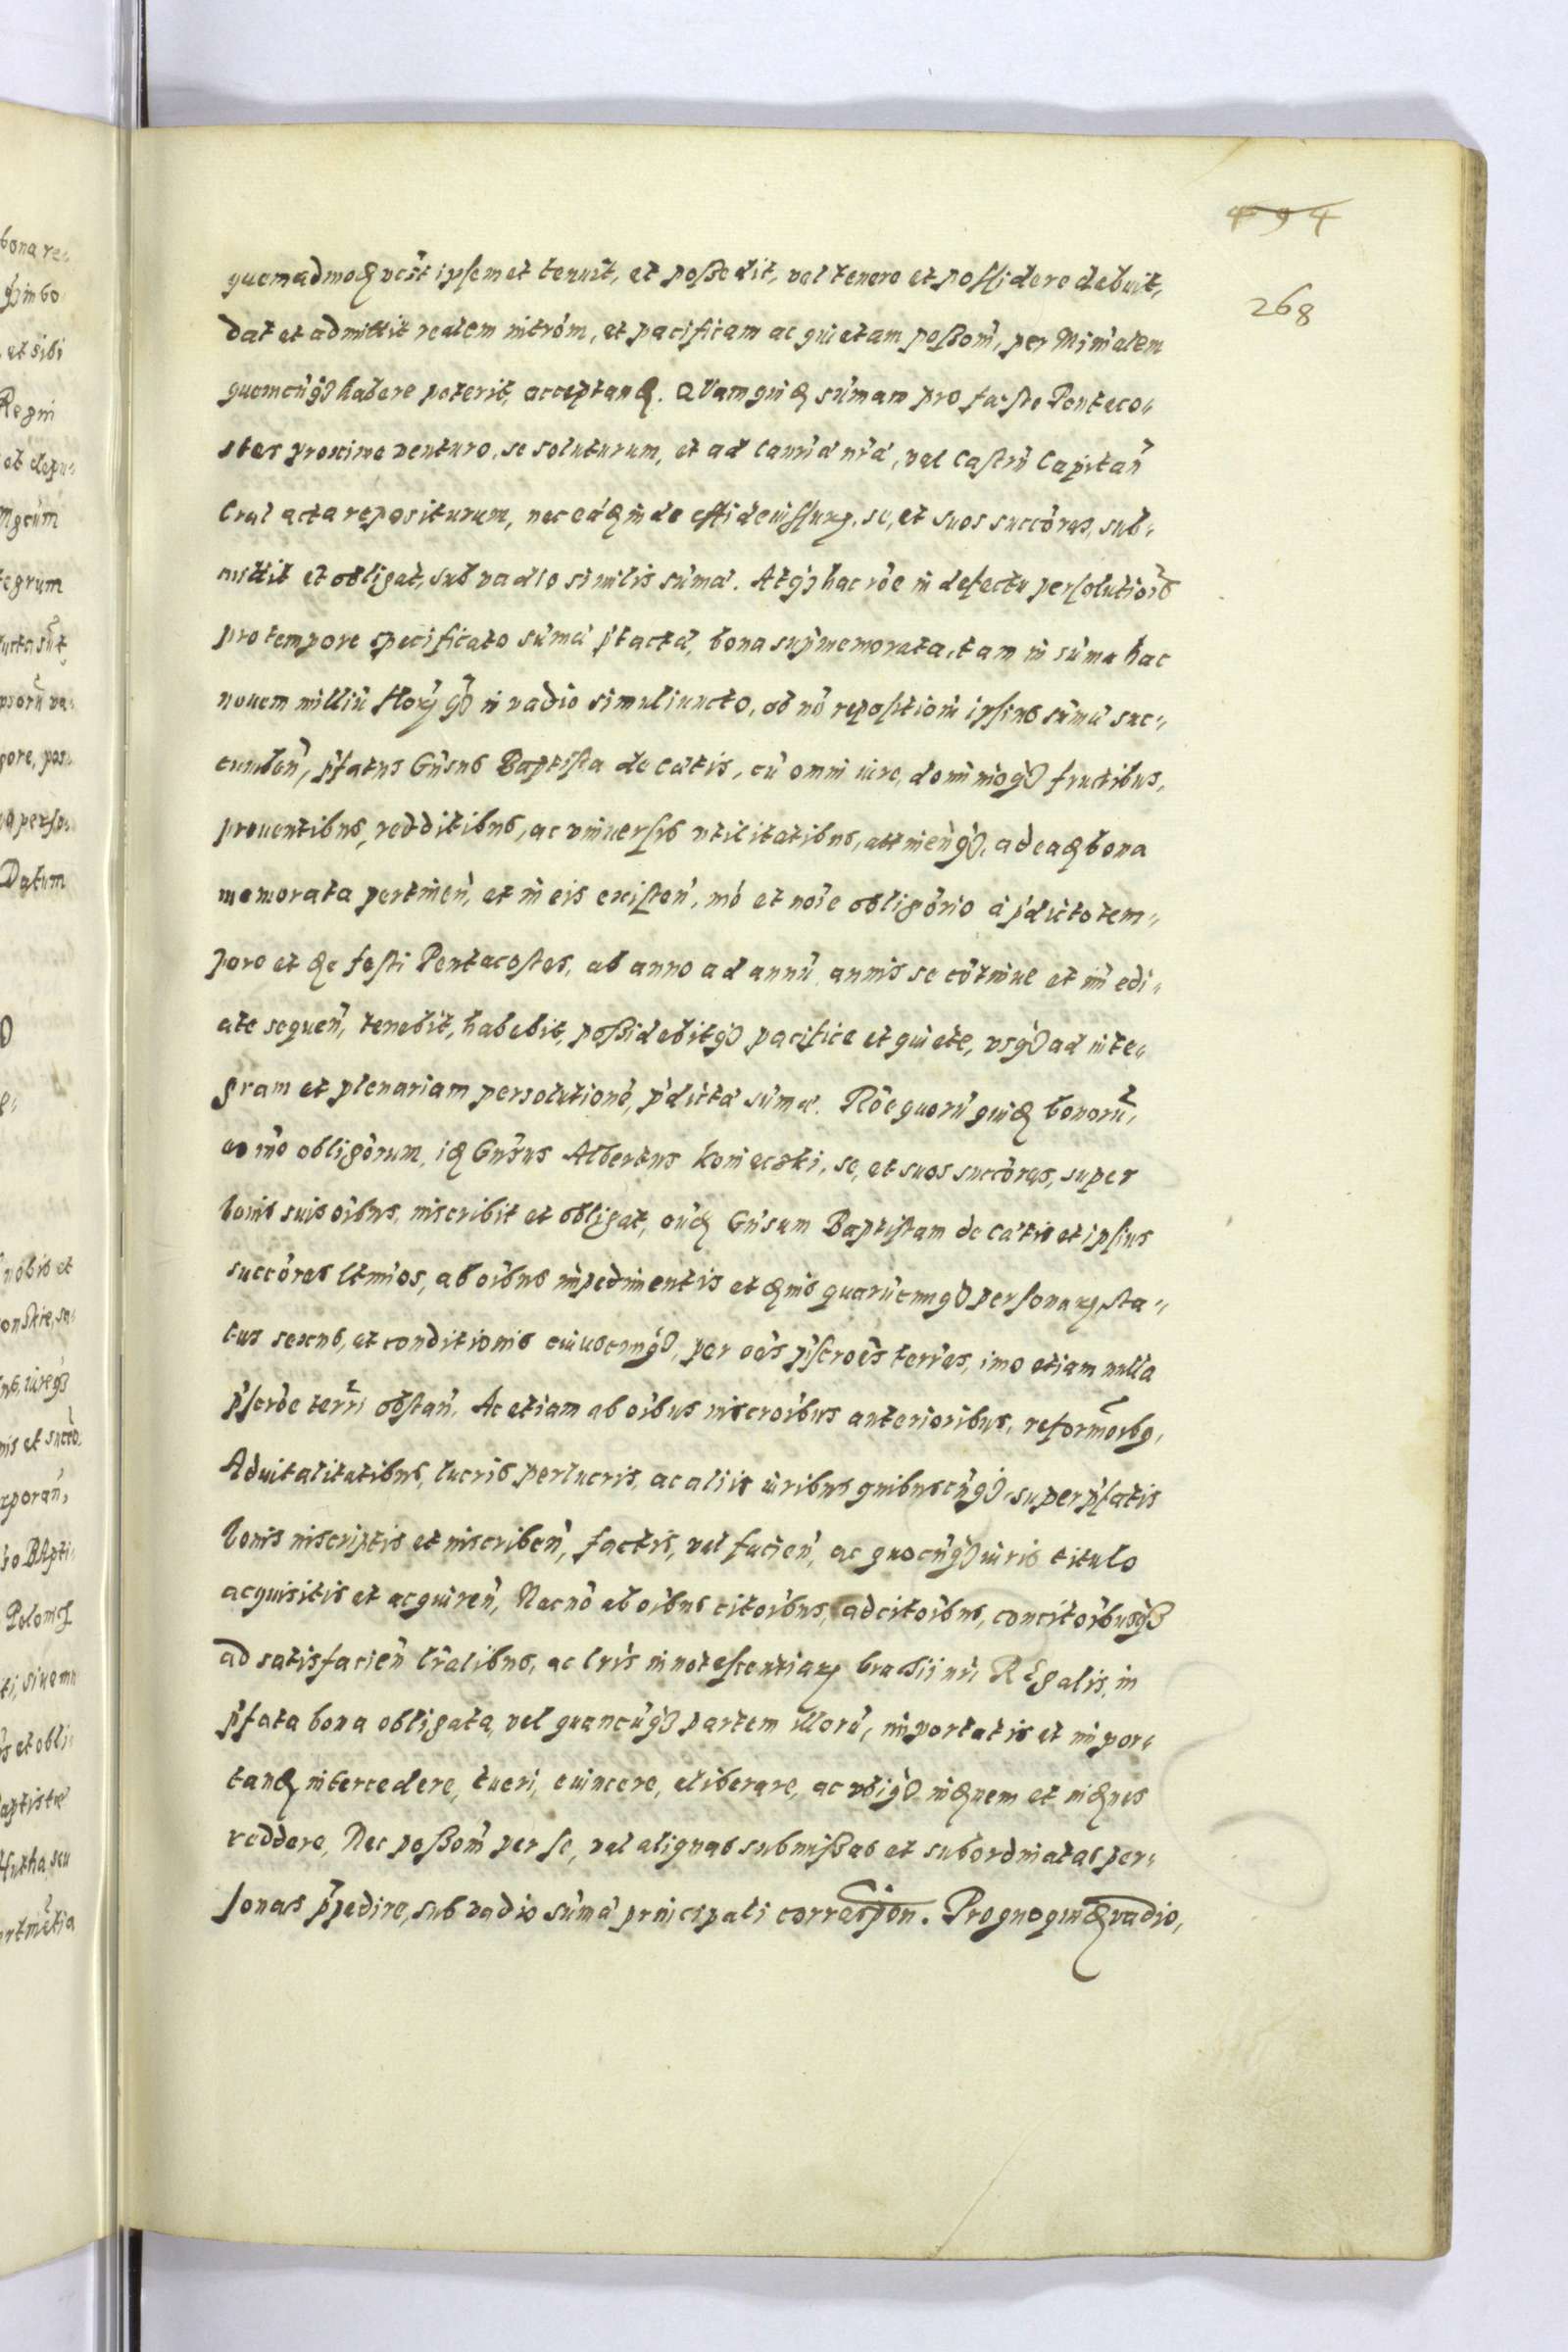 494
268
quemadmod vēst ipsemet tenuit, et possedit, vel tenere et possidere debuit,
dat et admittit realem intrōm, et pacificam ac quietam possom̄, per Min̄alem
quemcūq3 habere poterit, acceptand. Quam quid sūmam pro festo Penteco-
stes proxime venturo, se soluturum, et ad Canr̄ā nr̄ā, vel Castrū Capitan̄
Cral acta repositurum, nec eād inde, se, et suos succōres, sub-
mittit et obligat, sub vadio similis sūmæ. Atq3 hac rōe in defectu persolutiōis
pro tempore specificato sūmæ p̄tactæ, bona sup̄memorata, tam in sūma hac
novem milliū flor q̄3 in vadio simul iuncto, ob nō repositionē ipsius sūmæ suc-
cumben̄, p̄fatus Gn̄sus Baptista de Catis, cū omni iure, dominioq3 fructibus,
proventibus, redditibus, ac universis utilitatibus, attinen̄q3, ad ead bona
memorata pertinen̄, et in eis existen̄, mō et noīe obligōrio à p̄dicto tem-
pore et die festi Pentecostes, ab anno ad annū annis se cōtinue et im̄edi-
ate sequen̄, tenebit, habebit, possidebitq3 pacifice et quiete, usq3 ad inte-
gram et plenariam persolutionē, p̄dictæ sūmæ. Rōe quorū quid bonorū,
eo mō obligōrum, id Gn̄sus Albertus Koniecski, se, et suos succōres, super
bonis suis oībus, inscribit et obligat, eūd Gn̄sum Baptistam de Catis et ipsius
succōres ltmīos, ab oībus impedimentis et dnis quarūcunq3 personar, sta-
tus sexus, et conditionis cuiuscunq3, per oēs p̄scrōes terr̄es, imo etiam nulla
p̄scrōe terr̄i obstan̄. Ac etiam ab oībus inscroībus anterioribus, reformōībq,
Advitalitatibus, lucris perlucris, ac aliis iuribus quibuscūq3, super p̄fatis
bonis inscriptis et inscriben̄, factis, vel facien̄, ac quocūq3 iuris titulo
acquisitis et acquiren̄, Necnō ab oībus citoībus, adcitoībus, concitoībusq3
ad satisfacien̄ lr̄alibus, ac lr̄is innotescentiar brachii nr̄i Regalis, in
p̄fata bona obligata, vel quancūq3 partem illorū, importatis et impor-
tand intercedere, tueri, evincere, eliberare, ac ubiq3 indnem et indnes
reddere, Nec possom̄ per se, vel aliquas submissas et subordinatas per-
sonas p̄pedire, sub vadio sūmæ principali correspon̄. Pro quo quid vadio,